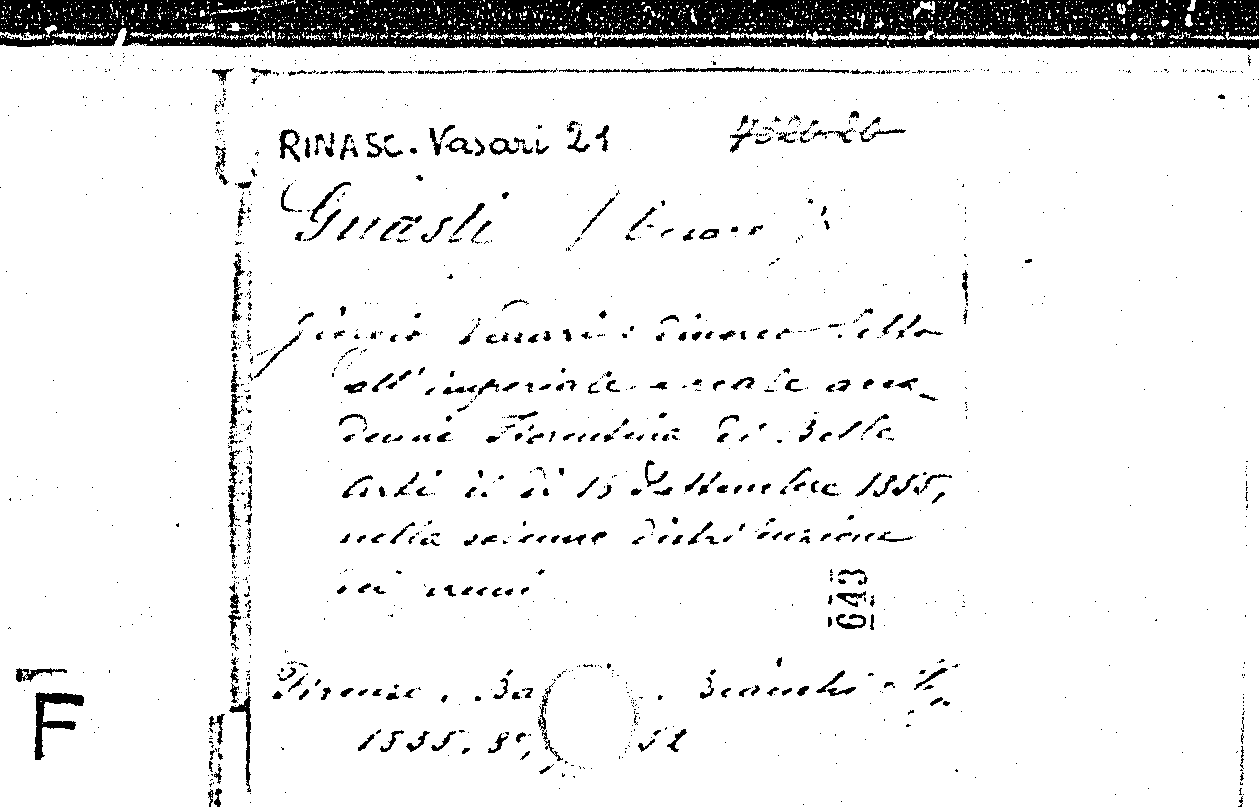 RINASC. Vasari 21
Guasti (Cesare)
Giorgio Vasari: discorso letto
all'imperiale e reale acca-
demia Fiorentina di Belle
Arti il dì 15 Settembre 1855,
nella solenne distribuzione
dei premi
643
Firenze, Bianchi
1855. 8°,
F